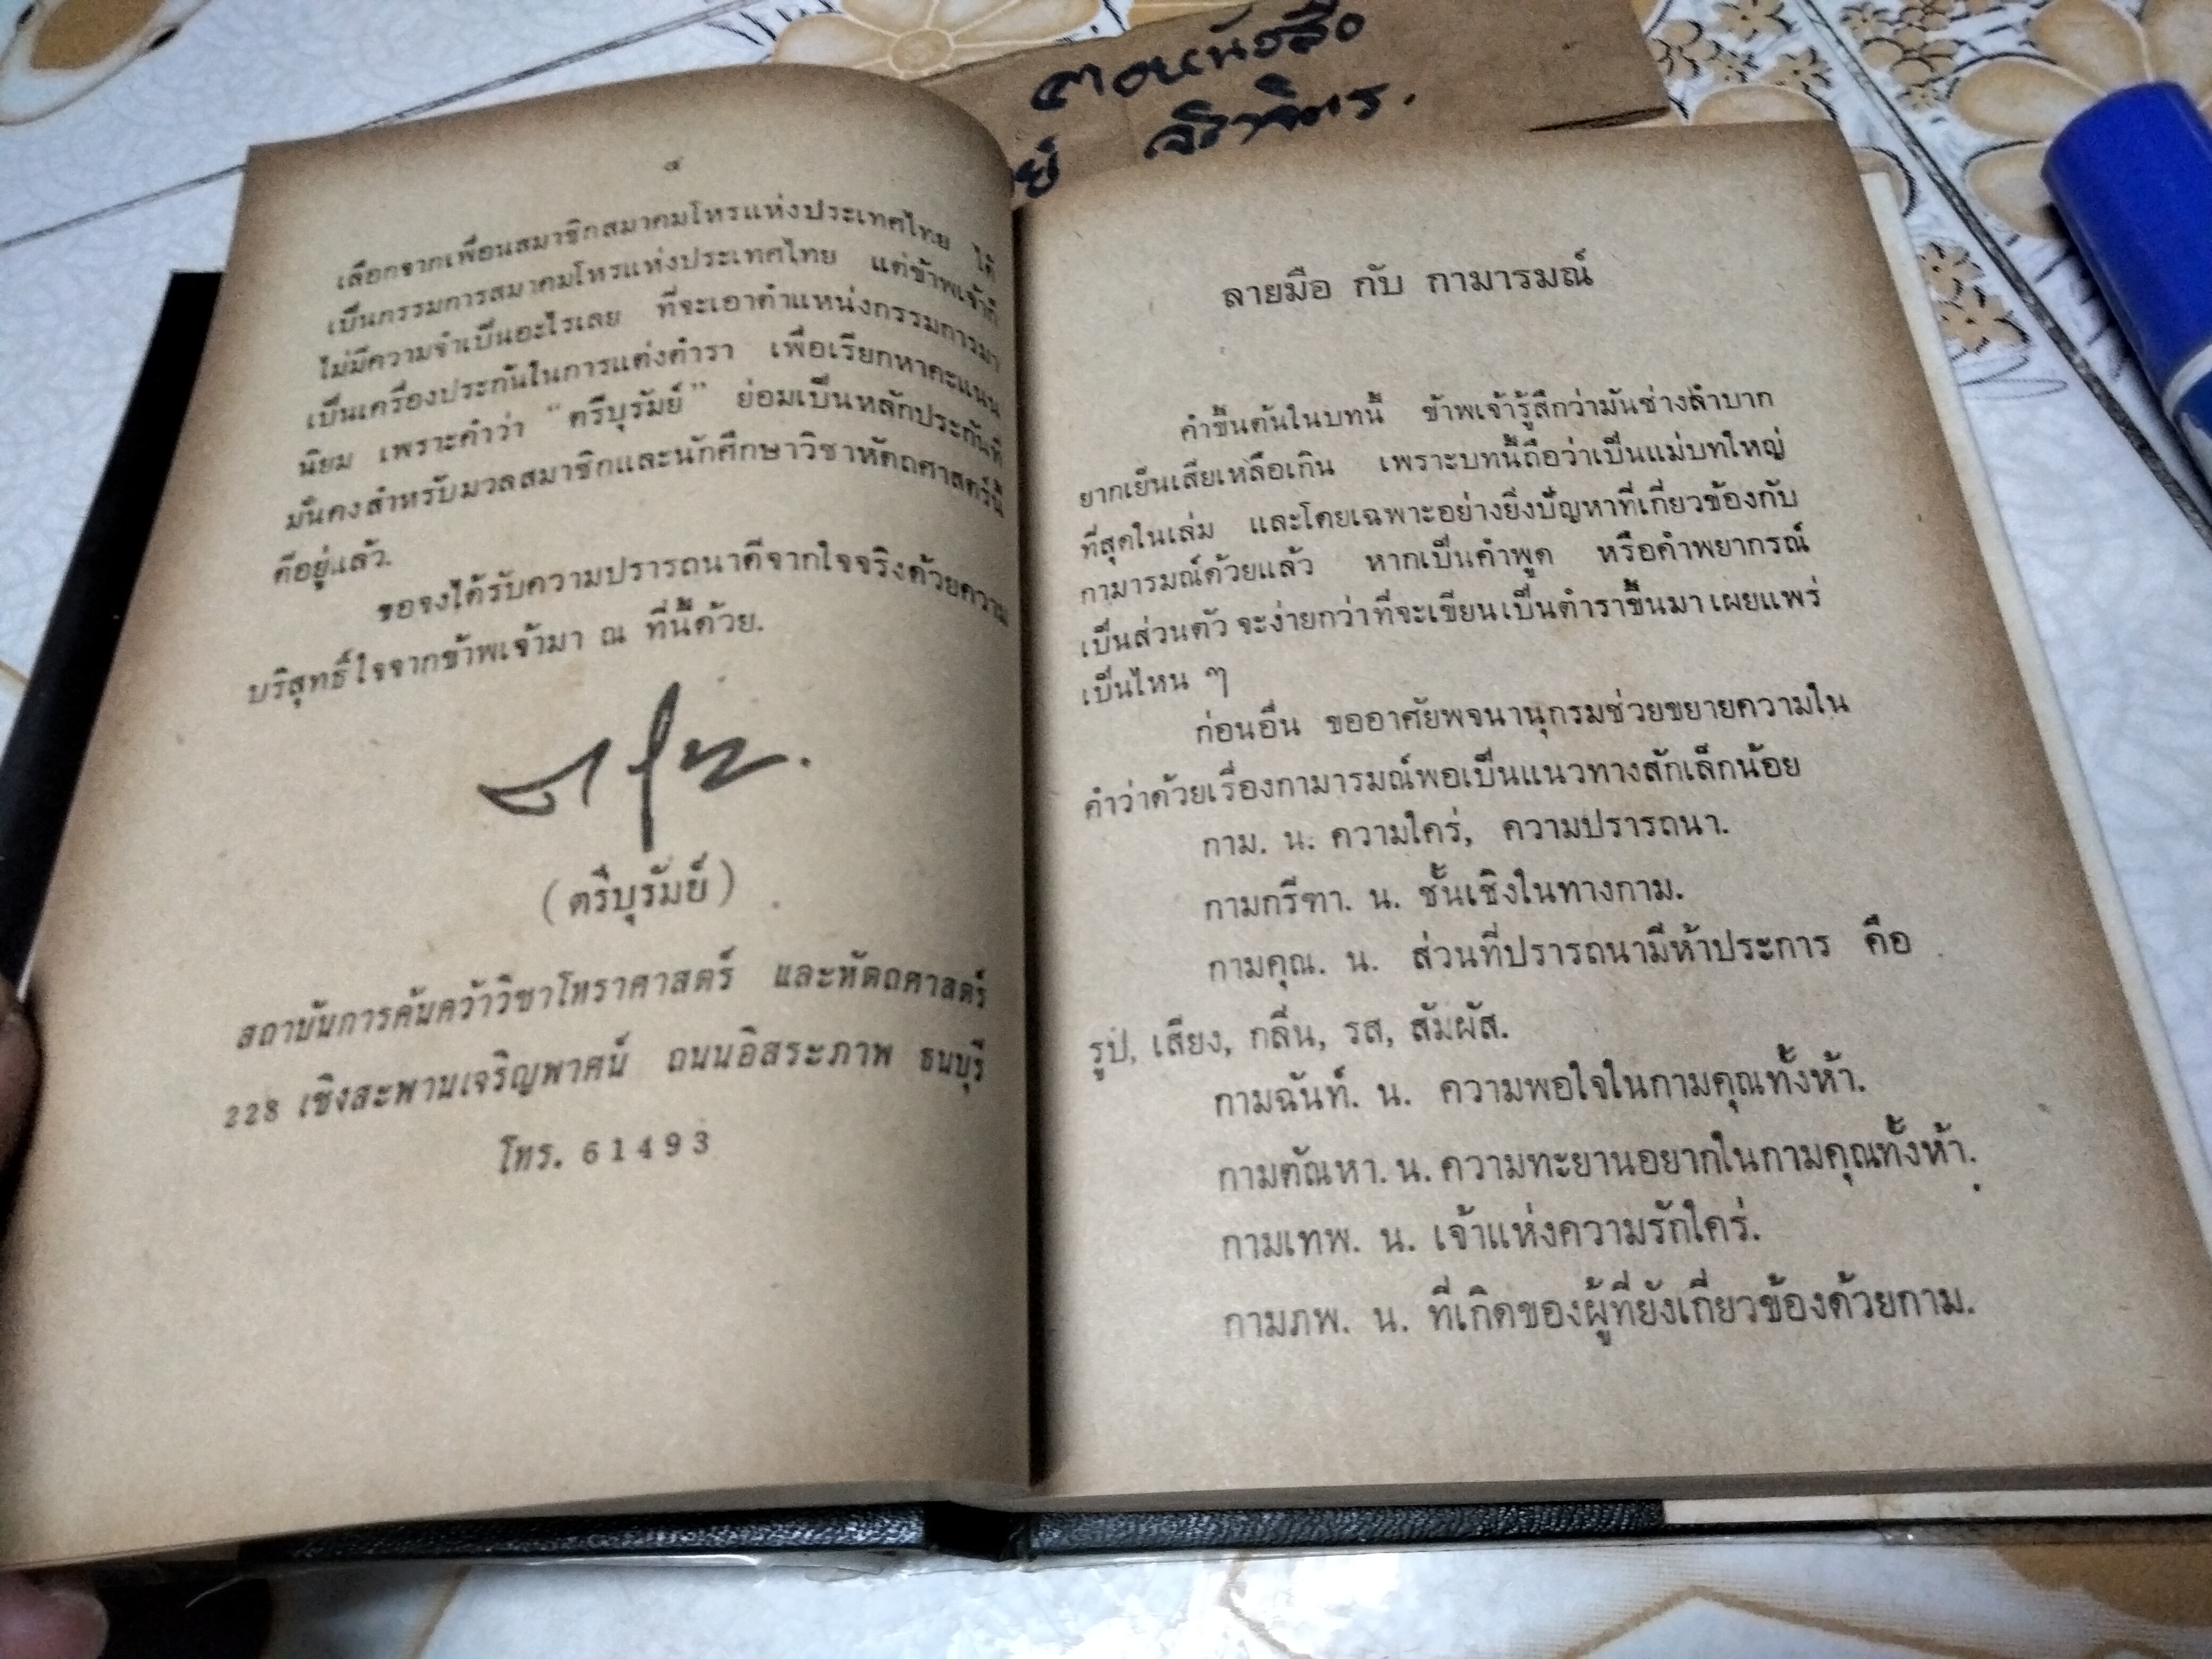 ๔
เลือกจากเพื่อนสมาชิกสมาคมโหรแห่งประเทศไทย ได้
เป็นกรรมการสมาคมโหรแห่งประเทศไทย แต่ข้าพเจ้าก็
ไม่มีความจำเป็นอะไรเลย ที่จะเอาตำแหน่งกรรมการมา
เป็นเครื่องประกันในการแต่งตำรา เพื่อเรียกหาคะแนน
นิยม เพราะคำว่า “ตรีบุรัมย์” ย่อมเป็นหลักประกันที่
มั่นคงสำหรับมวลสมาชิกและนักศึกษาวิชาหัตถศาสตร์นี้
ดีอยู่แล้ว.
ขอจงได้รับความปรารถนาดีจากใจจริงด้วยความ
บริสุทธิ์ใจจากข้าพเจ้ามา ณ ที่นี้ด้วย.
(ตรีบุรัมย์)
สถาบันการค้นคว้าวิชาโหราศาสตร์ และหัตถศาสตร์
228 เชิงสะพานเจริญพาศน์ ถนนอิสระภาพ ธนบุรี
โทร. 61493
ลายมือ กับ กามารมณ์
คำขึ้นต้นในบทนี้ ข้าพเจ้ารู้สึกว่ามันช่างลำบาก
ยากเย็นเสียเหลือเกิน เพราะบทนี้ถือว่าเป็นแม่บทใหญ่
ที่สุดในเล่ม และโดยเฉพาะอย่างยิ่งปัญหาที่เกี่ยวข้องกับ
กามารมณ์ด้วยแล้ว หากเป็นคำพูด หรือคำพยากรณ์
เป็นส่วนตัว จะง่ายกว่าที่จะเขียนเป็นตำราขึ้นมาเผยแพร่
เป็นไหน ๆ
ก่อนอื่น ขออาศัยพจนานุกรมช่วยขยายความใน
คำว่าด้วยเรื่องกามารมณ์พอเป็นแนวทางสักเล็กน้อย
กาม. น. ความใคร่, ความปรารถนา.
กามกรีฑา. น. ชั้นเชิงในทางกาม.
กามคุณ. น. ส่วนที่ปรารถนามีห้าประการ คือ
รูป, เสียง, กลิ่น, รส, สัมผัส.
กามฉันท์. น. ความพอใจในกามคุณทั้งห้า.
กามตัณหา. น. ความทะยานอยากในกามคุณทั้งห้า.
กามเทพ. น. เจ้าแห่งความรักใคร่.
กามภพ. น. ที่เกิดของผู้ที่ยังเกี่ยวข้องด้วยกาม.